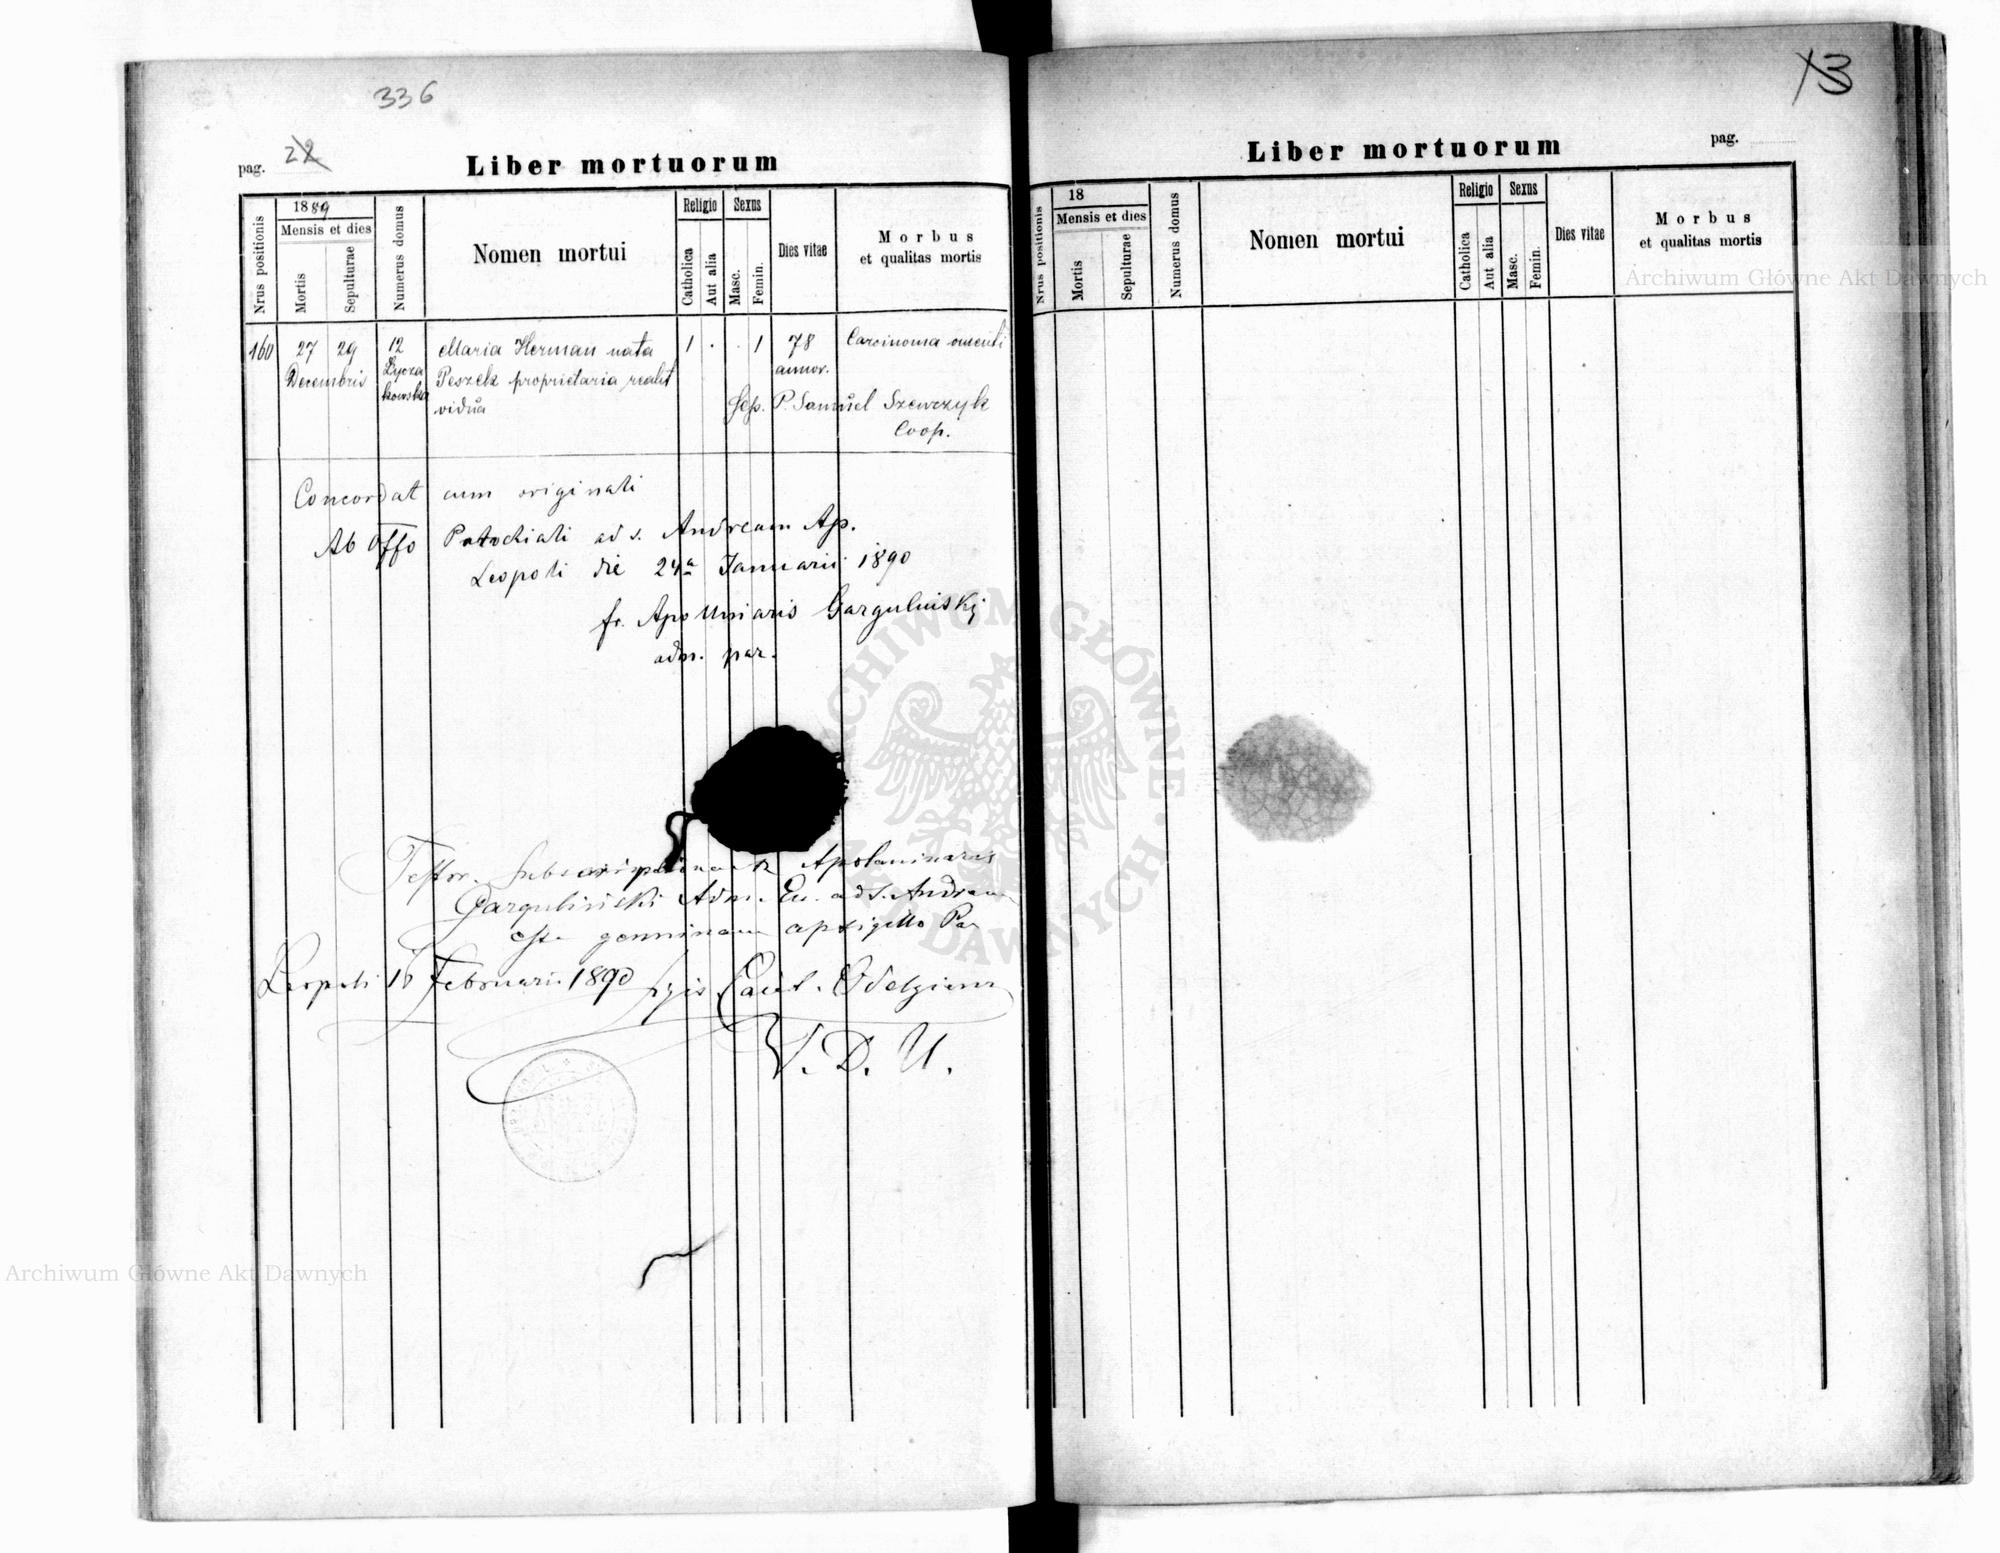 336
pag. 22
Liber mortuorum
Nrus positionis
1889
Mensis et dies
Mortis
Sepulturae
Numerus domus
Nomen mortui
Religio
Catholica
Aut alia
Sexus
Masc.
Femin.
Dies vitae
Morbus
et qualitas mortis
160
27 29
Decembris
12
Łycza
kowska
Maria Herman nata
Peszek proprietaria realit
vidua
1 . . 1
78
annor.
Carcinoma omenti
Sep. P. Samuel Szewczyk
Coop.
Concordat cum originali
Ab Offo Parochiali ad s. Andream Ap.
Leopoli die 24a Januarii 1890
fr. Apollinaris Gargulinskj
adm. par.
Testor. Apolaminaris
Gargulinski Adm. Ecc. ad S. Andream
esse genuinam
Leopoli 10 Februarii 1890
V. D. U.
13
Liber mortuorum
pag.
Nrus positionis
18
Mensis et dies
Mortis
Sepulturae
Numerus domus
Nomen mortui
Religio
Catholica
Aut alia
Sexus
Masc.
Femin.
Dies vitae
Morbus
et qualitas mortis
Archiwum Główne Akt Dawnych
ARCHIWUM GŁÓWNE
AKT DAWNYCH
Archiwum Główne Akt Dawnych